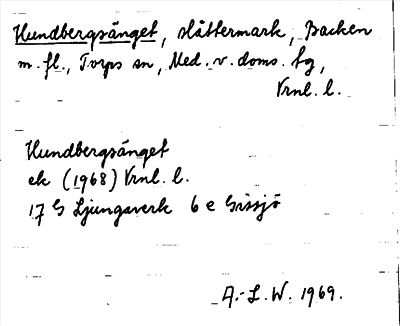 Hundbergsänget, slåttermark, Backen
m.fl., Torps sn, Med. v. doms. tg,
Vrnl. l.
Hundbergsänget
ek (1968) Vrnl. l.
17 G Ljungaverk 6 e Gissjö
A.-L. W. 1969.